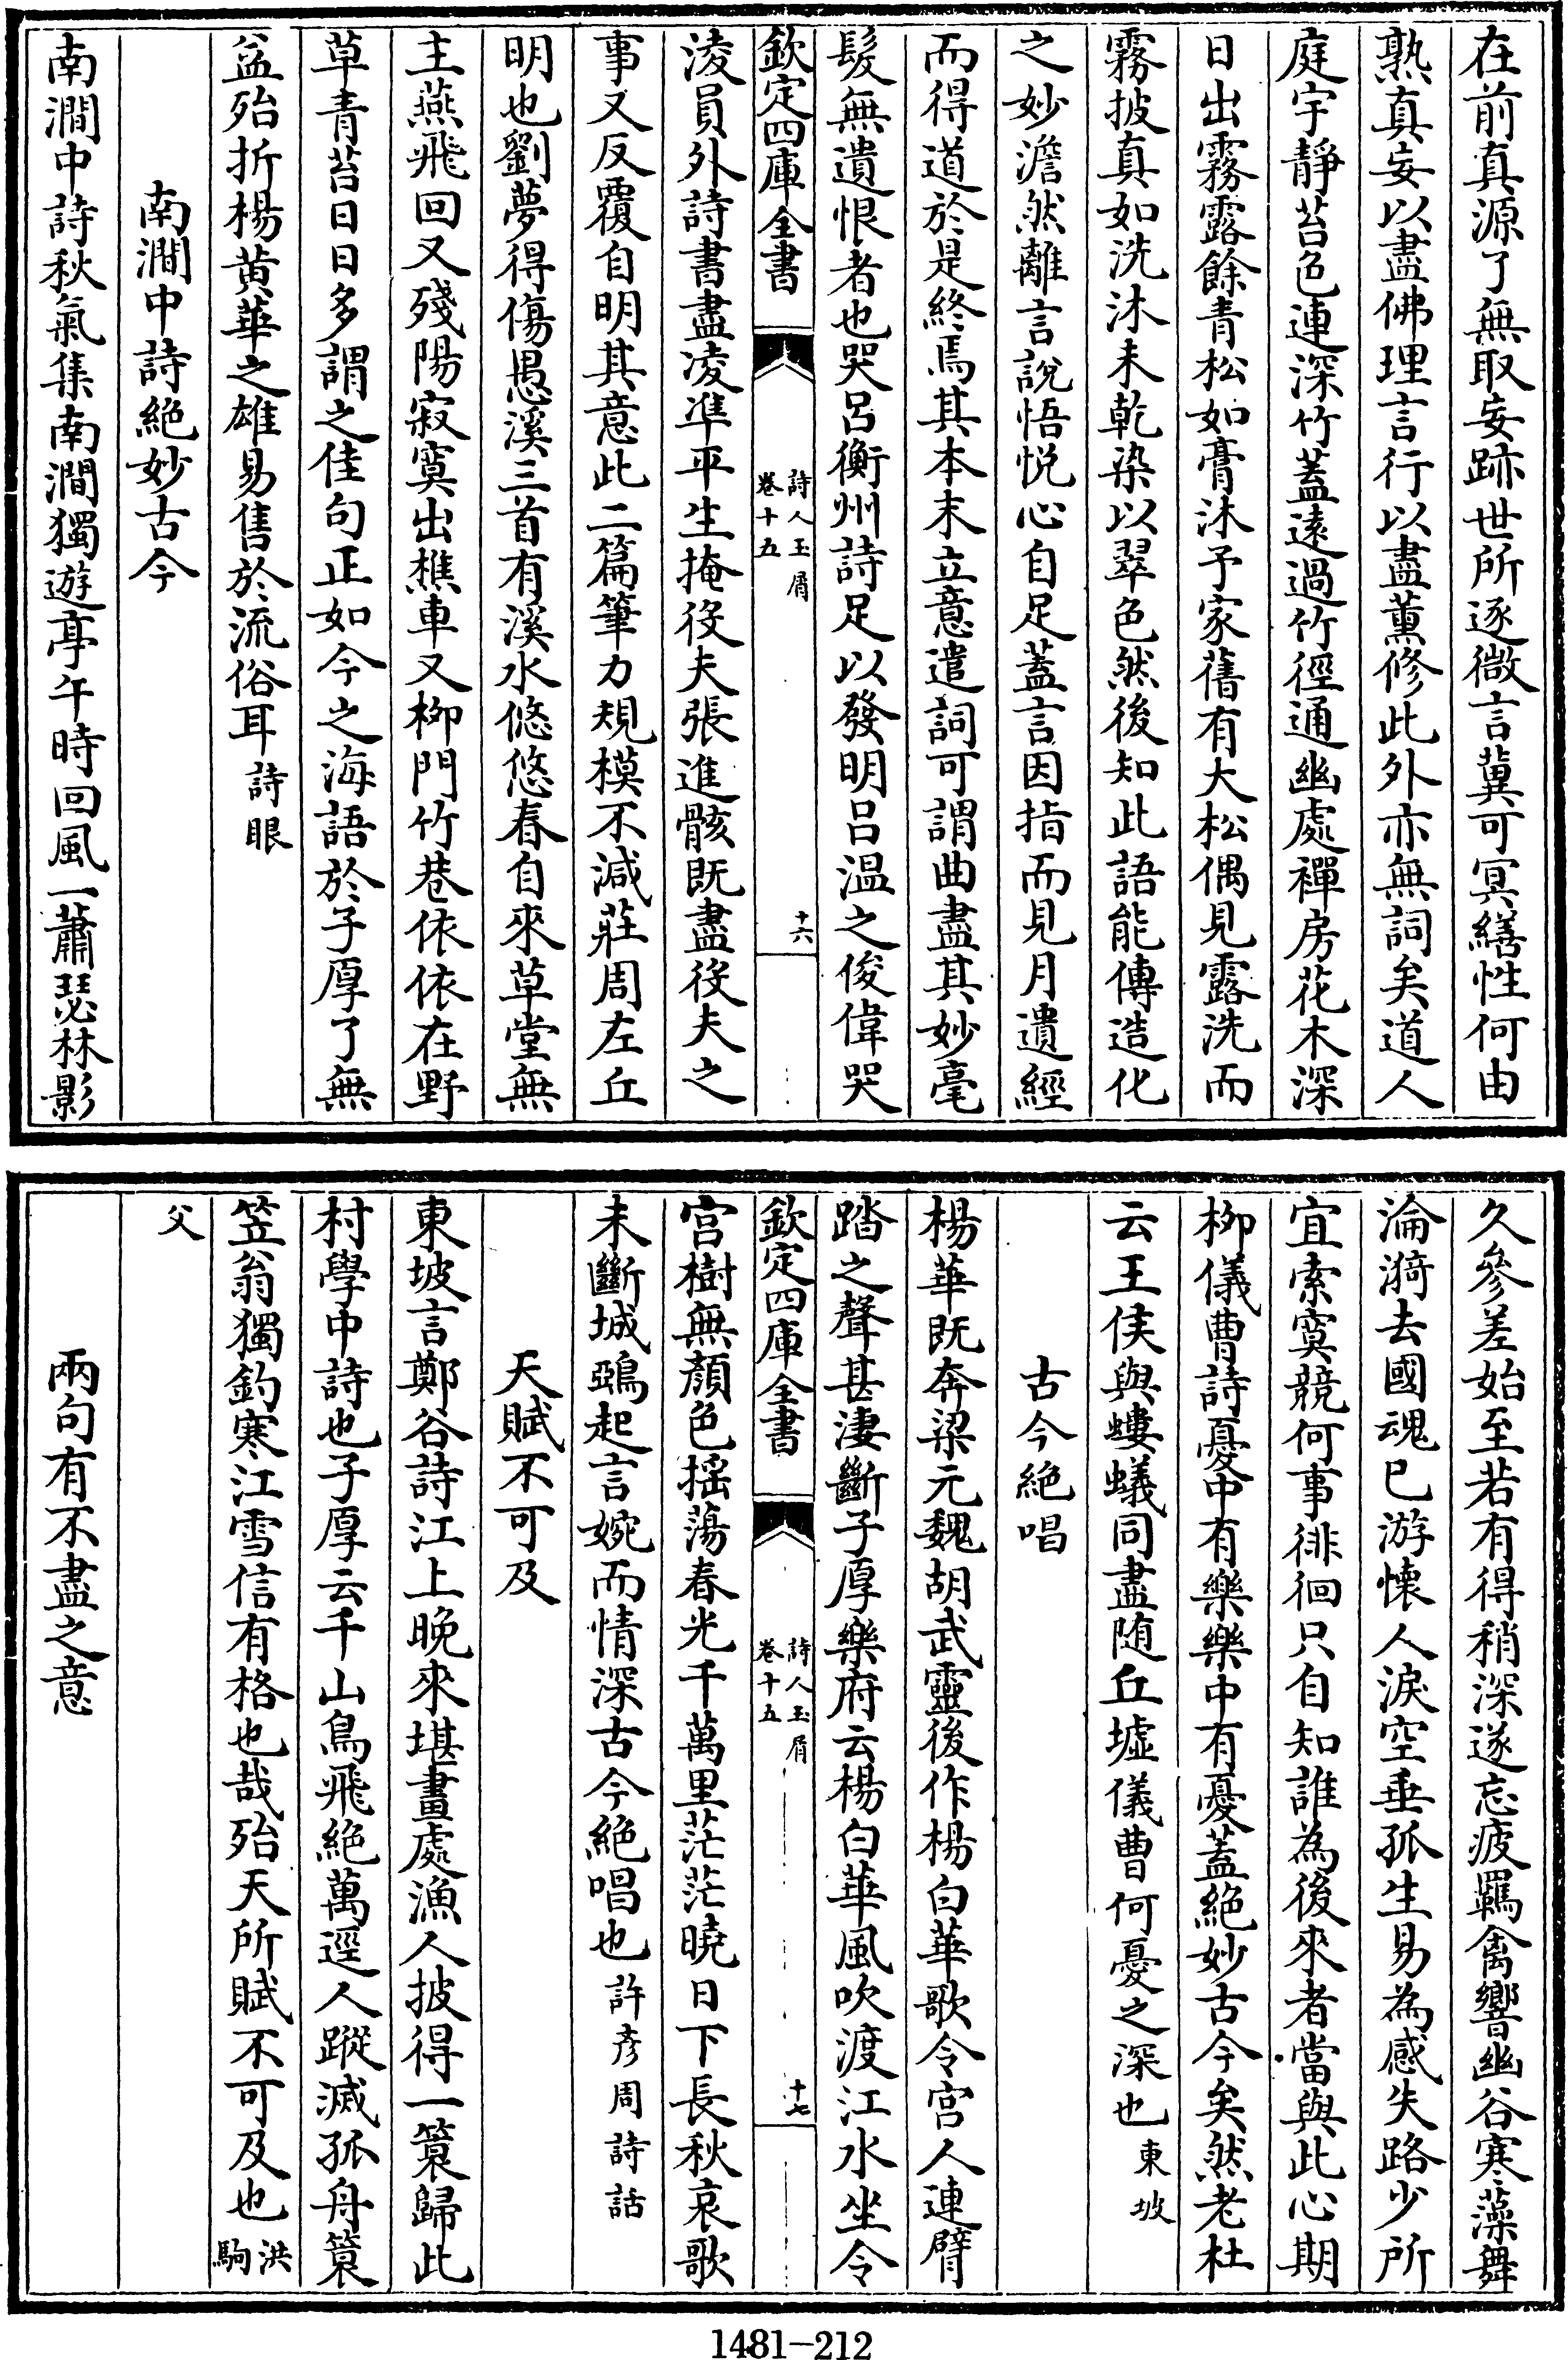 在前真源了無取妄跡世所逐微言冀可冥繕性何由
熟真妄以盡佛理言行以盡薰修此外亦無詞矣道人
庭宇靜苔色連深竹蓋遠過竹徑通幽處禪房花木深
日出霧露餘青松如膏沐予家舊有大松偶見露洗而
霧披真如洗沐未乾染以翠色然後知此語能傳造化
之妙澹然離言説悟悦心自足蓋言因指而見月遺經
而得道於是終焉其本末立意遣詞可謂曲盡其妙毫
髮無遺恨者也哭呂衡州詩足以發明呂温之俊偉哭
欽定四庫全書
詩人玉屑
卷十五
十六
淩員外詩書盡凌凖平生掩役夫張進骸既盡役夫之
事又反覆自明其意此二篇筆力規模不減莊周左丘
明也劉夢得傷愚溪三首有溪水悠悠春自來草堂無
主燕飛回又殘陽寂寞出樵車又柳門竹巷依依在野
草青苔日日多謂之佳句正如今之海語於子厚了無
益殆折楊黄華之雄易售於流俗耳詩眼
南澗中詩絶妙古今
南澗中詩秋氣集南澗獨遊亭午時回風一蕭瑟林影
久參差始至若有得稍深遂忘疲羈禽響幽谷寒藻舞
淪漪去國魂已游懷人淚空垂孤生易為感失路少所
宜索寞競何事徘徊只自知誰為後來者當與此心期
柳儀曹詩憂中有樂樂中有憂蓋絶妙古今矣然老杜
云王侯與螻蟻同盡隨丘墟儀曹何憂之深也東坡
古今絶唱
楊華既奔梁元魏胡武靈後作楊白華歌令宫人連臂
踏之聲甚淒斷子厚樂府云楊白華風吹渡江水坐令
欽定四庫全書
詩人玉屑
卷十五
十七
宫樹無顔色揺蕩春光千萬里茫茫曉日下長秋哀歌
未斷城鵶起言婉而情深古今絶唱也許彦周詩話
天賦不可及
東坡言鄭谷詩江上晚來堪畫處漁人披得一簑歸此
村學中詩也子厚云千山鳥飛絶萬逕人蹤滅孤舟簑
笠翁獨釣寒江雪信有格也哉殆天所賦不可及也洪駒
父
兩句有不盡之意
1481-212